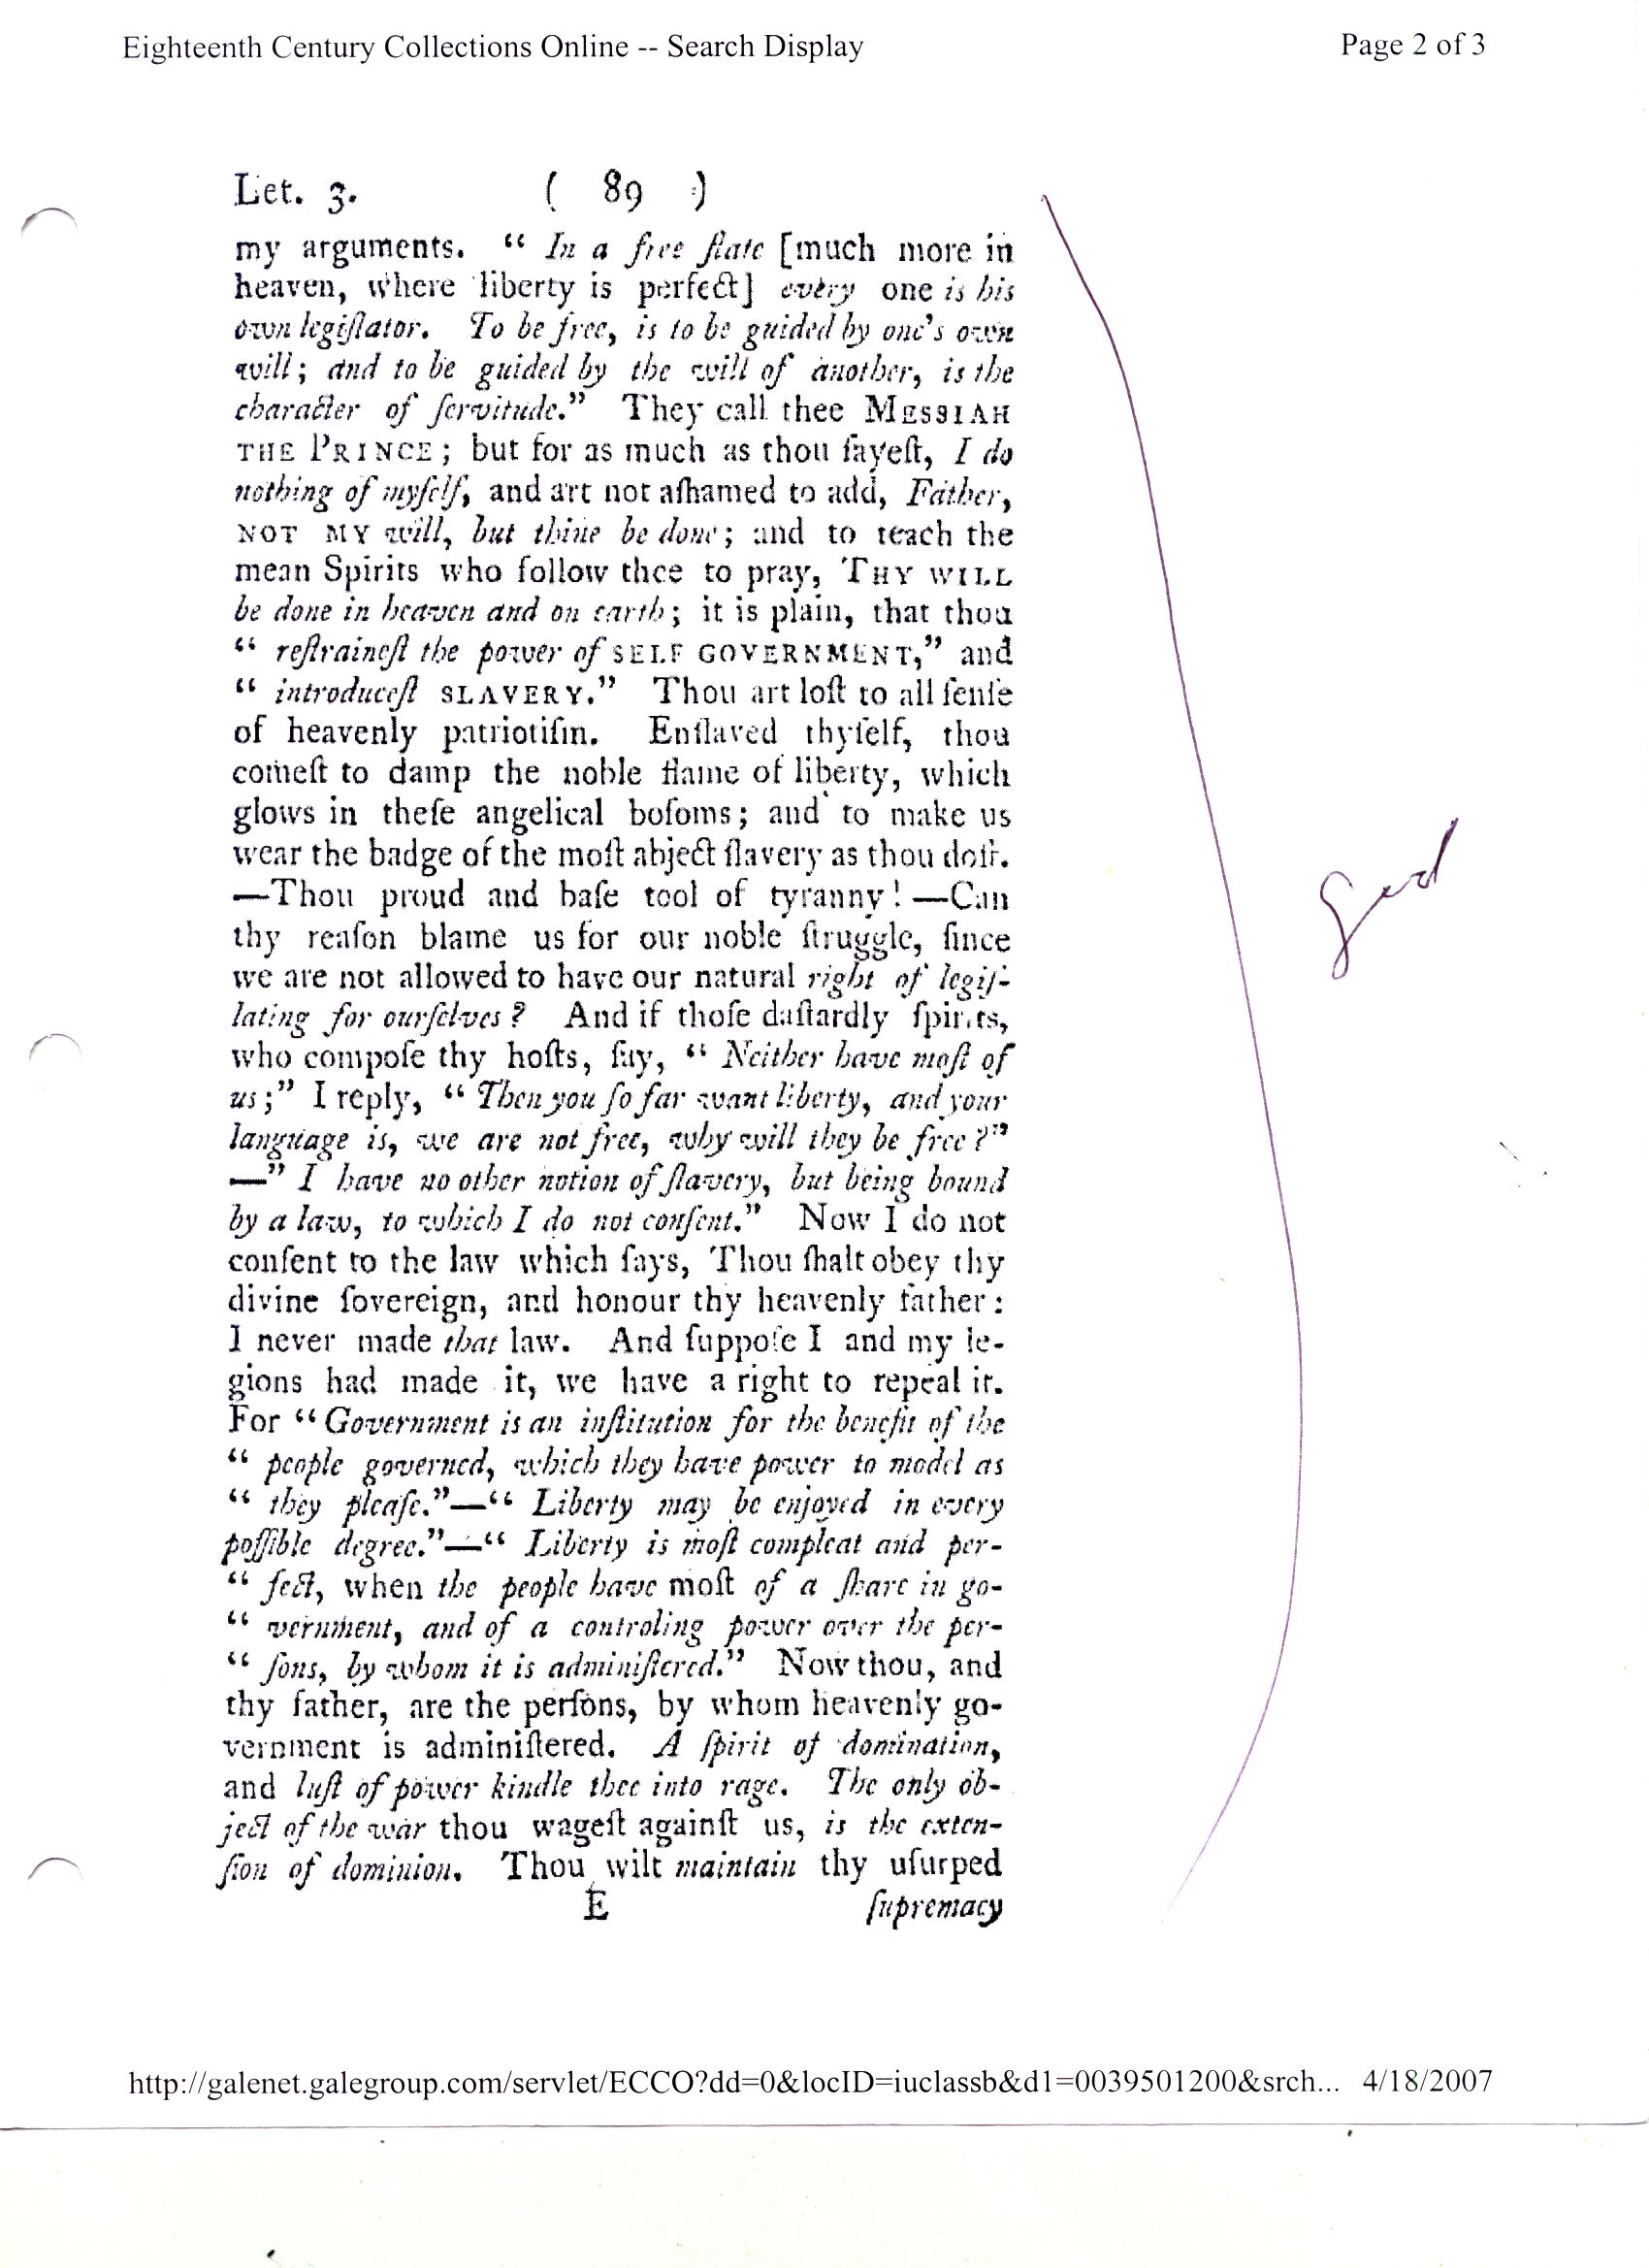 Eighteenth Century Collections Online -- Search Display Page 2 of 3
Let. 3. ( 89 )
my arguments. “ In a free ſtate [much more in
heaven, where liberty is perfect] every one is his
own legiſlator. To be free, is to be guided by one's own
will; and to be guided by the will of another, is the
character of ſervitude.” They call thee MESSIAH
THE PRINCE; but for as much as thou ſayeſt, I do
nothing of myſelf, and art not aſhamed to add, Father,
NOT MY will, but thine be done; and to teach the
mean Spirits who follow thee to pray, THY WILL
be done in heaven and on earth; it is plain, that thou
“ reſtraineſt the power of SELF GOVERNMENT,” and
“ introduceſt SLAVERY.” Thou art loſt to all ſenſe
of heavenly patriotiſm. Enſlaved thyſelf, thou
comeſt to damp the noble flame of liberty, which
glows in theſe angelical boſoms; and to make us
wear the badge of the moſt abject ſlavery as thou doſt.
—Thou proud and baſe tool of tyranny! —Can
thy reaſon blame us for our noble ſtruggle, ſince
we are not allowed to have our natural right of legiſ-
lating for ourſelves? And if thoſe daſtardly ſpirits,
who compoſe thy hoſts, ſay, “ Neither have moſt of
us;” I reply, “ Then you ſo far want liberty, and your
language is, we are not free, why will they be free?”
—” I have no other notion of ſlavery, but being bound
by a law, to which I do not conſent.” Now I do not
conſent to the law which ſays, Thou ſhalt obey thy
divine ſovereign, and honour thy heavenly father:
I never made that law. And ſuppoſe I and my le-
gions had made it, we have a right to repeal it.
For “ Government is an inſtitution for the benefit of the
“ people governed, which they have power to model as
“ they pleaſe.”—“ Liberty may be enjoyed in every
poſſible degree.”—“ Liberty is moſt compleat and per-
“ fect, when the people have moſt of a ſhare in go-
“ vernment, and of a controling power over the per-
“ ſons, by whom it is adminiſtered.” Now thou, and
thy father, are the perſons, by whom heavenly go-
vernment is adminiſtered. A ſpirit of domination,
and luſt of power kindle thee into rage. The only ob-
ject of the war thou wageſt againſt us, is the exten-
ſion of dominion. Thou wilt maintain thy uſurped
E ſupremacy
Good
http://galenet.galegroup.com/servlet/ECCO?dd=0&locID=iuclassb&d1=0039501200&srch... 4/18/2007